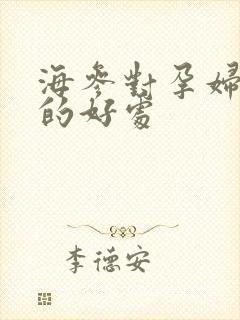 海參對孕婦
的好處
李德安